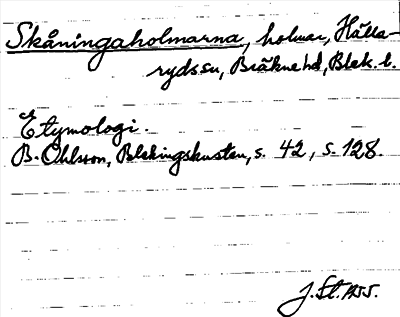 Skåningaholmarna, holmar, Hälla-
rydssn, Bräknehd, Blek. l.
Etymologi.
B. Ohlsson, Blekingskusten, s. 42, s. 128.
J. St.